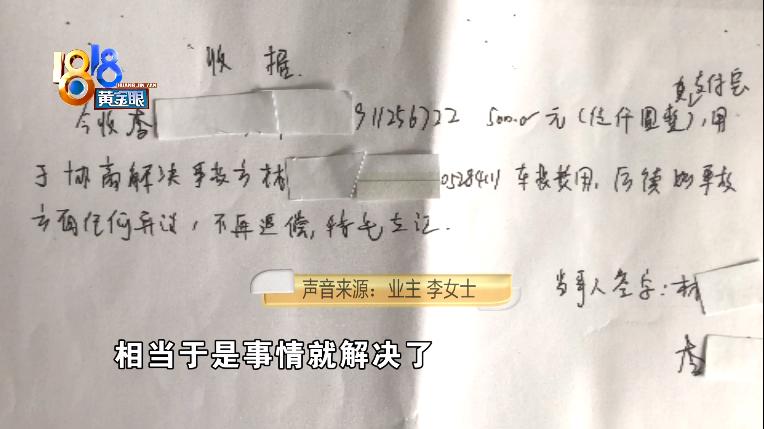 1818
HUANG JIN YAN
黄金眼
收据
支付宝
今收李 911256722 5000.0元(伍仟圆整),用
于协商解决事故方林 05284411 车损费用,后续如事故
方有任何异议,不再退偿,特此立证.
声音来源:业主 李女士
当事人签字:林
李
相当于是事情就解决了